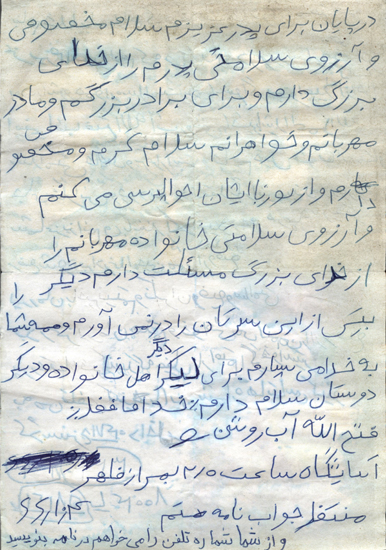 در پایان برای پدر عزیزم سلام مخصوصی
و آرزوی سلامتی پدرم را از خدای
بزرگ دارم و برای برادر بزرگم و مادر
مهربانم و خواهرانم سلام گرم و مخصوصی
دارم و از دور با ایشان احوالپرسی می کنم
و آرزوی سلامتی خانواده مهربانم را
از خدای بزرگ مسئلت دارم دیگر
بیش از این سرتان را درد نمی آورم و همه شما را
به خدا می سپارم برای دیگر اهل خانواده و دیگر
دوستان سلام دارم خدا حافظ
فتح الله آب روشن
آسایشگاه ساعت ۲/۵ بعد از ظهر
منتظر جواب نامه هستم
و از شما شماره تلفن را می خواهم در نامه بنویسید